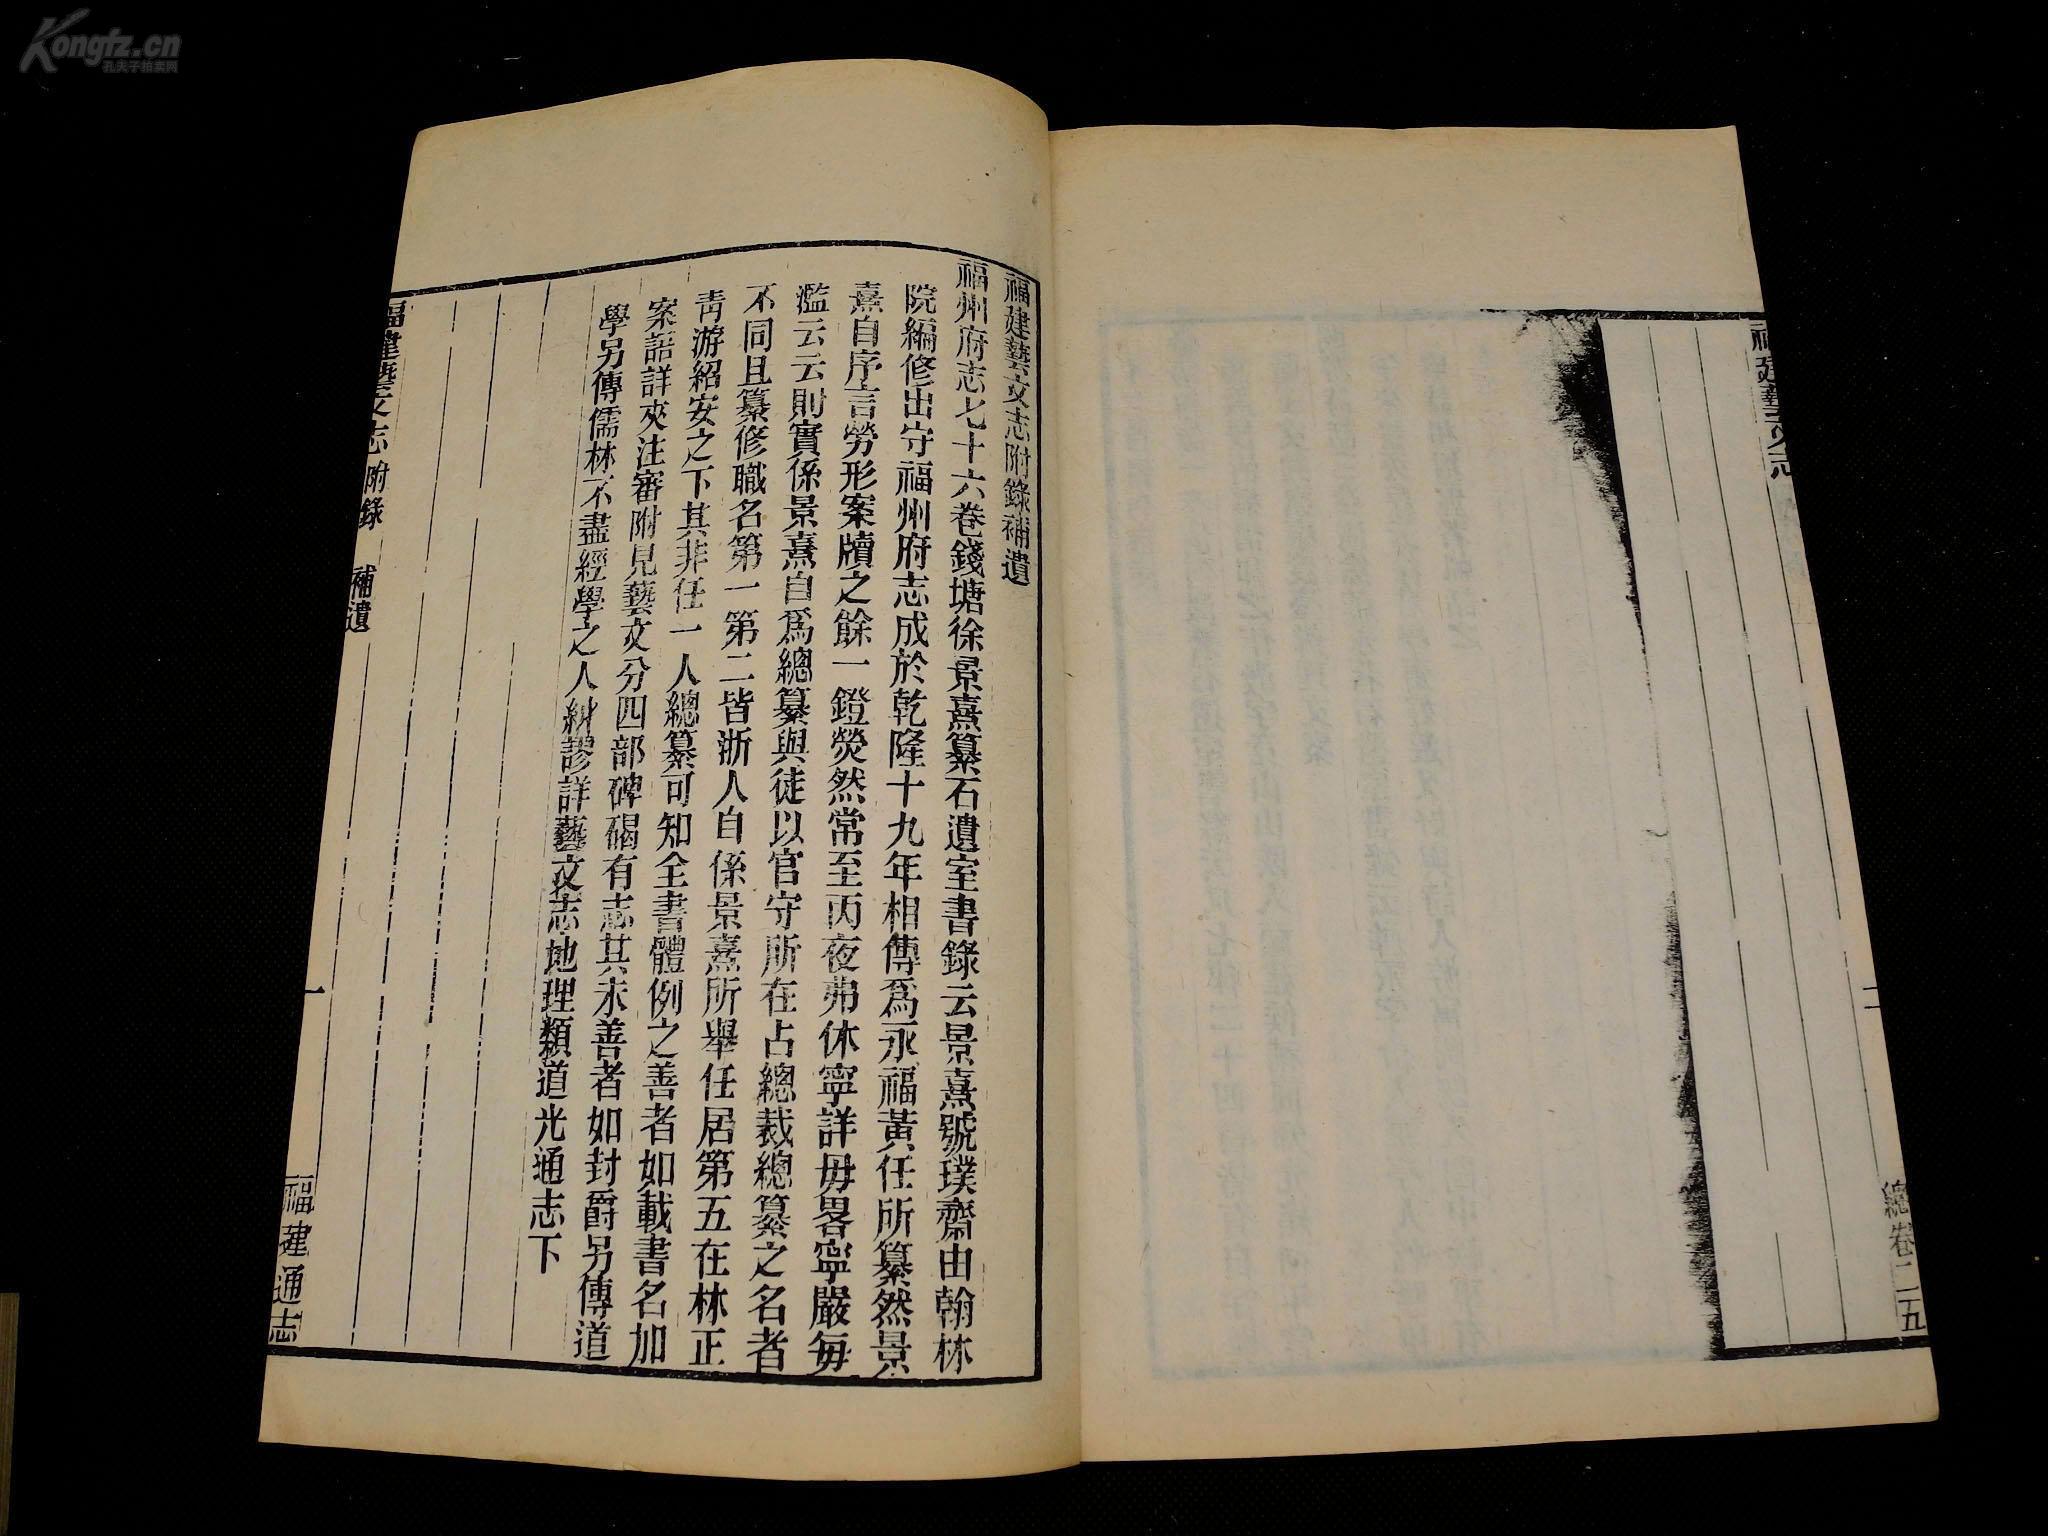 Kongfz.cn
孔夫子拍卖网
福建藝文志
二
總卷二五
福建藝文志附錄補遺
福州府志七十六卷錢塘徐景熹纂石遺室書錄云景熹號璞齋由翰林
院編修出守福州府志成於乾隆十九年相傳爲永福黃任所纂然景
熹自序言勞形案牘之餘一鐙熒然常至丙夜弗休寧詳毋畧寧嚴毎
濫云云則實係景熹自爲總纂與徒以官守所在占總裁總纂之名者
不同且纂修職名第一第二皆浙人自係景熹所舉任居第五在林正
靑游紹安之下其非任一人總纂可知全書體例之善者如載書名加
案語詳夾注審附見藝文分四部碑碣有志其未善者如封爵另傳道
學另傳儒林不盡經學之人糾謬詳藝文志地理類道光通志下
福建藝文志 附錄 補遺
一
福建通志